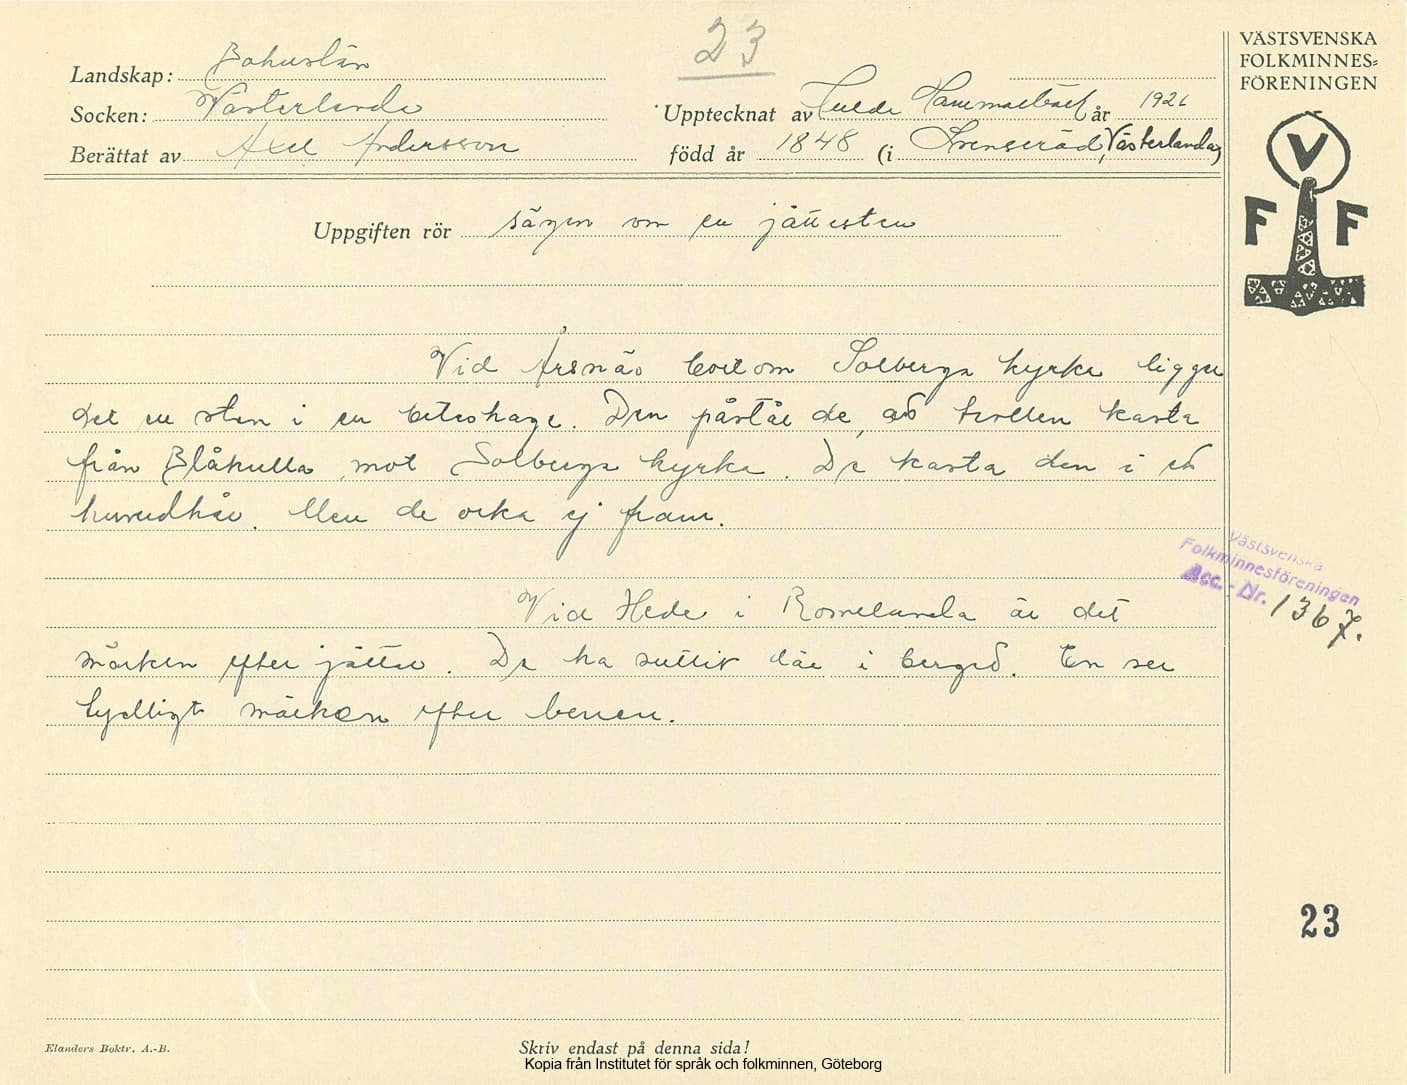 23
VÄSTSVENSKA
FOLKMINNES=
FÖRENINGEN
Landskap: Bohuslän
Socken: Västerlanda
Upptecknat av Hulda Hammarbäck år 1926
Berättat av Axel Andersson
född år 1848 (i Svenseröd, Västerlanda)
V
F F
Uppgiften rör sägen om en jättesten
Vid Årsnäs bortom Solberga kyrka ligger
det en sten i en beteshage. Den påstår de, att trollen kasta
från Blåkulla mot Solberga kyrka. De kasta den i ett
huvudhår. Men de orka ej fram.
Västsvenska
Folkminnesföreningen
Acc.-Nr. 1367.
Vid Hede i Romelanda är det
märken efter jättar. De ha suttit där i berget. En ser
tydligt märken efter benen.
23
Elanders Boktr. A.-B.
Skriv endast på denna sida!
Kopia från Institutet för språk och folkminnen, Göteborg